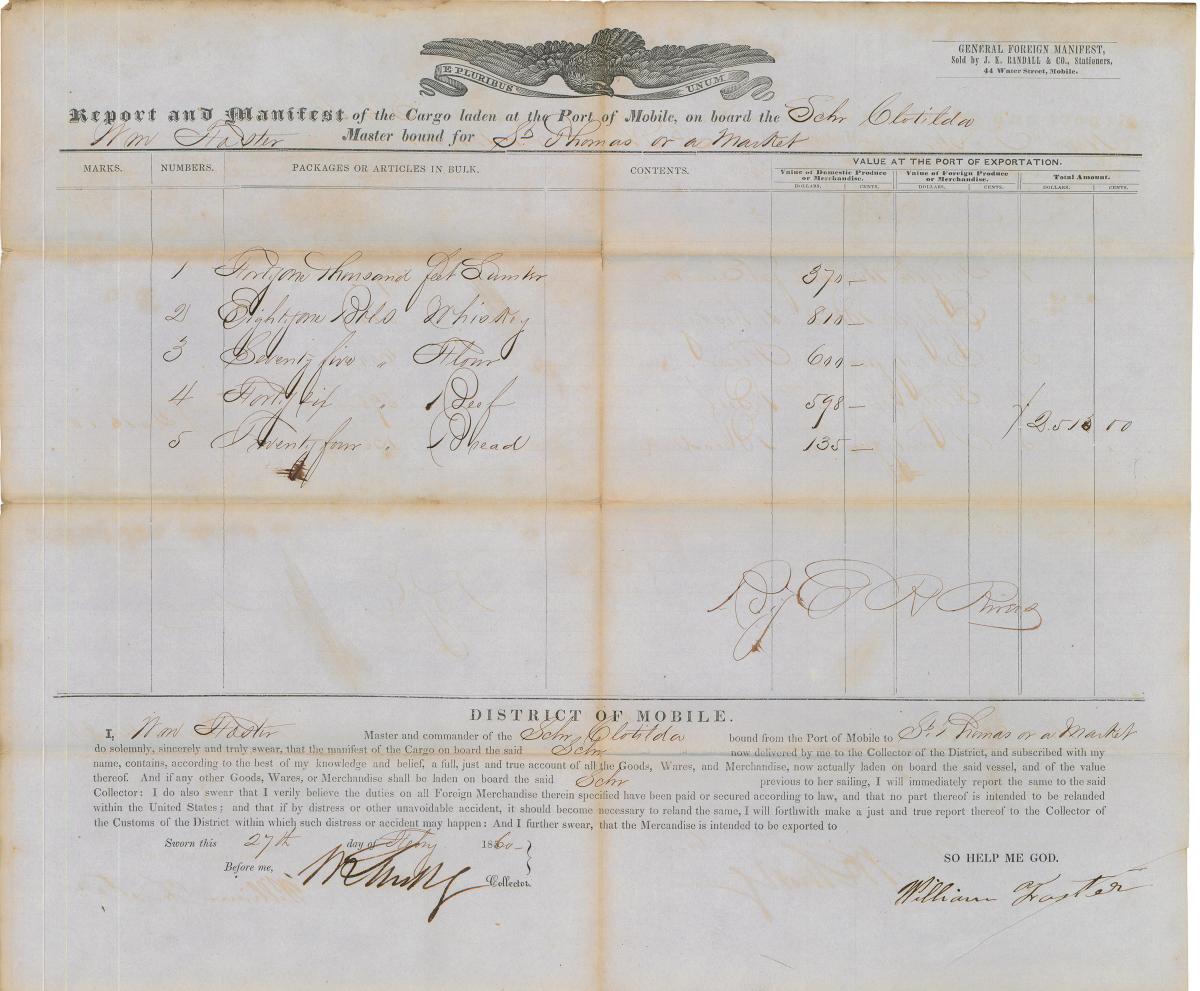 E PLURIBUS UNUM
GENERAL FOREIGN MANIFEST,
Sold by J. K. RANDALL & CO., Stationers,
44 Water Street, Mobile.
Report and Manifest of the Cargo laden at the Port of Mobile, on board the Schr Clotilda
Wm Foster Master bound for St Thomas or a Market
VALUE AT THE PORT OF EXPORTATION.
MARKS. NUMBERS. PACKAGES OR ARTICLES IN BULK. CONTENTS. Value of Domestic Produce or Merchandise. Value of Foreign Produce or Merchandise. Total Amount.
DOLLARS. CENTS. DOLLARS. CENTS. DOLLARS. CENTS.
1 Fortyone Thousand feet Lumber 370 —
2 Eightyone Bbls Whiskey 810 —
3 Seventy five " Flour 600 —
4 Forty six " Beef 598 —
5 Twenty four " Bread 135 — 2.513 00
E R Rivers
DISTRICT OF MOBILE.
I, Wm Foster Master and commander of the Schr Clotilda bound from the Port of Mobile to St Thomas or a Market
do solemnly, sincerely and truly swear, that the manifest of the Cargo on board the said Schr now delivered by me to the Collector of the District, and subscribed with my
name, contains, according to the best of my knowledge and belief, a full, just and true account of all the Goods, Wares, and Merchandise, now actually laden on board the said vessel, and of the value
thereof. And if any other Goods, Wares, or Merchandise shall be laden on board the said Schr previous to her sailing, I will immediately report the same to the said
Collector: I do also swear that I verily believe the duties on all Foreign Merchandise therein specified have been paid or secured according to law, and that no part thereof is intended to be relanded
within the United States; and that if by distress or other unavoidable accident, it should become necessary to reland the same, I will forthwith make a just and true report thereof to the Collector of
the Customs of the District within which such distress or accident may happen: And I further swear, that the Merchandise is intended to be exported to
Sworn this 27th day of Feby 1860 —
Before me, Collector.
SO HELP ME GOD.
William Foster